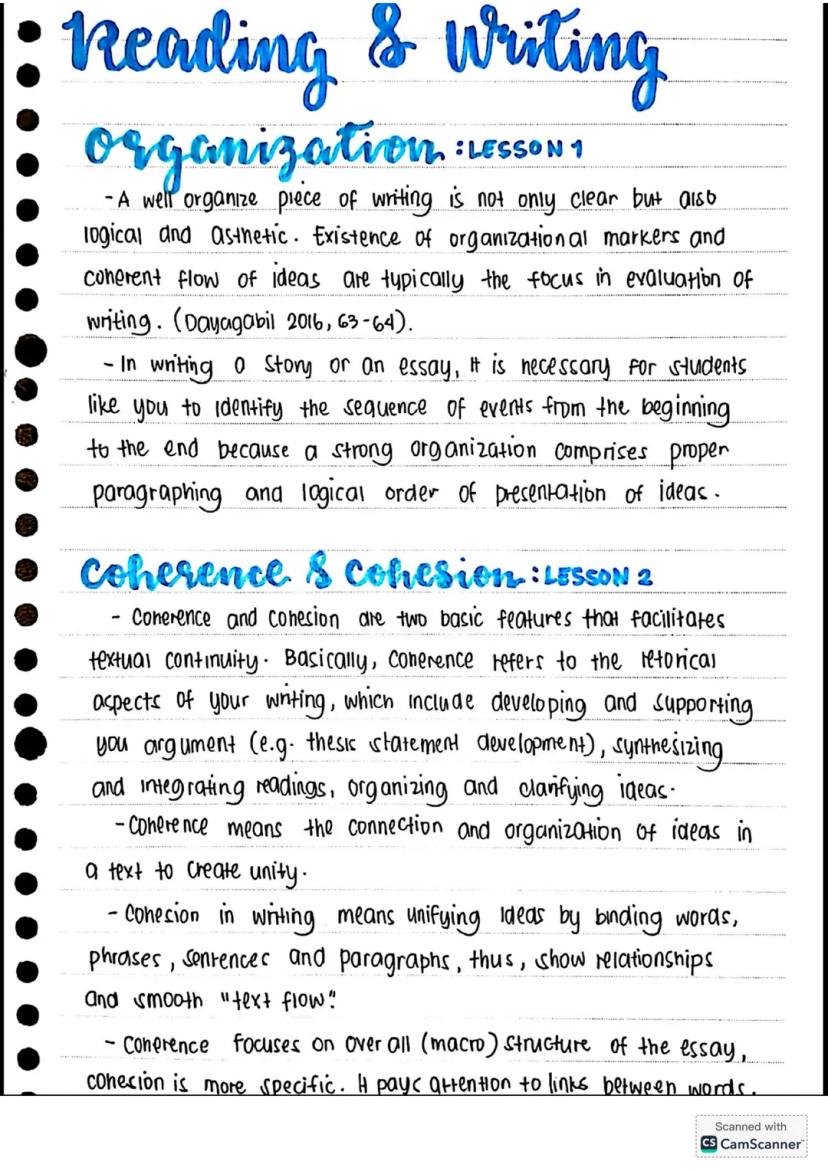 Reading & Writing
organization : LESSON 1
- A well organize piece of writing is not only clear but also
logical and asthetic. Existence of organizational markers and
coherent flow of ideas are typically the focus in evaluation of
writing. (Dayagabil 2016, 63-64).
- In writing a story or an essay, it is necessary for students
like you to identify the sequence of events from the beginning
to the end because a strong organization comprises proper
paragraphing and logical order of presentation of ideas.
Coherence & Cohesion : LESSON 2
- Coherence and Cohesion are two basic features that facilitates
textual continuity. Basically, coherence refers to the retorical
aspects of your writing, which include developing and supporting
you argument (e.g. thesis statement development), synthesizing
and integrating readings, organizing and clarifying ideas.
- Coherence means the connection and organization of ideas in
a text to create unity.
- Cohesion in writing means unifying ideas by binding words,
phrases, sentences and paragraphs, thus, show relationships
and smooth "text flow."
- Coherence focuses on over all (macro) structure of the essay,
cohesion is more specific. It pays attention to links between words.
Scanned with
CS CamScanner